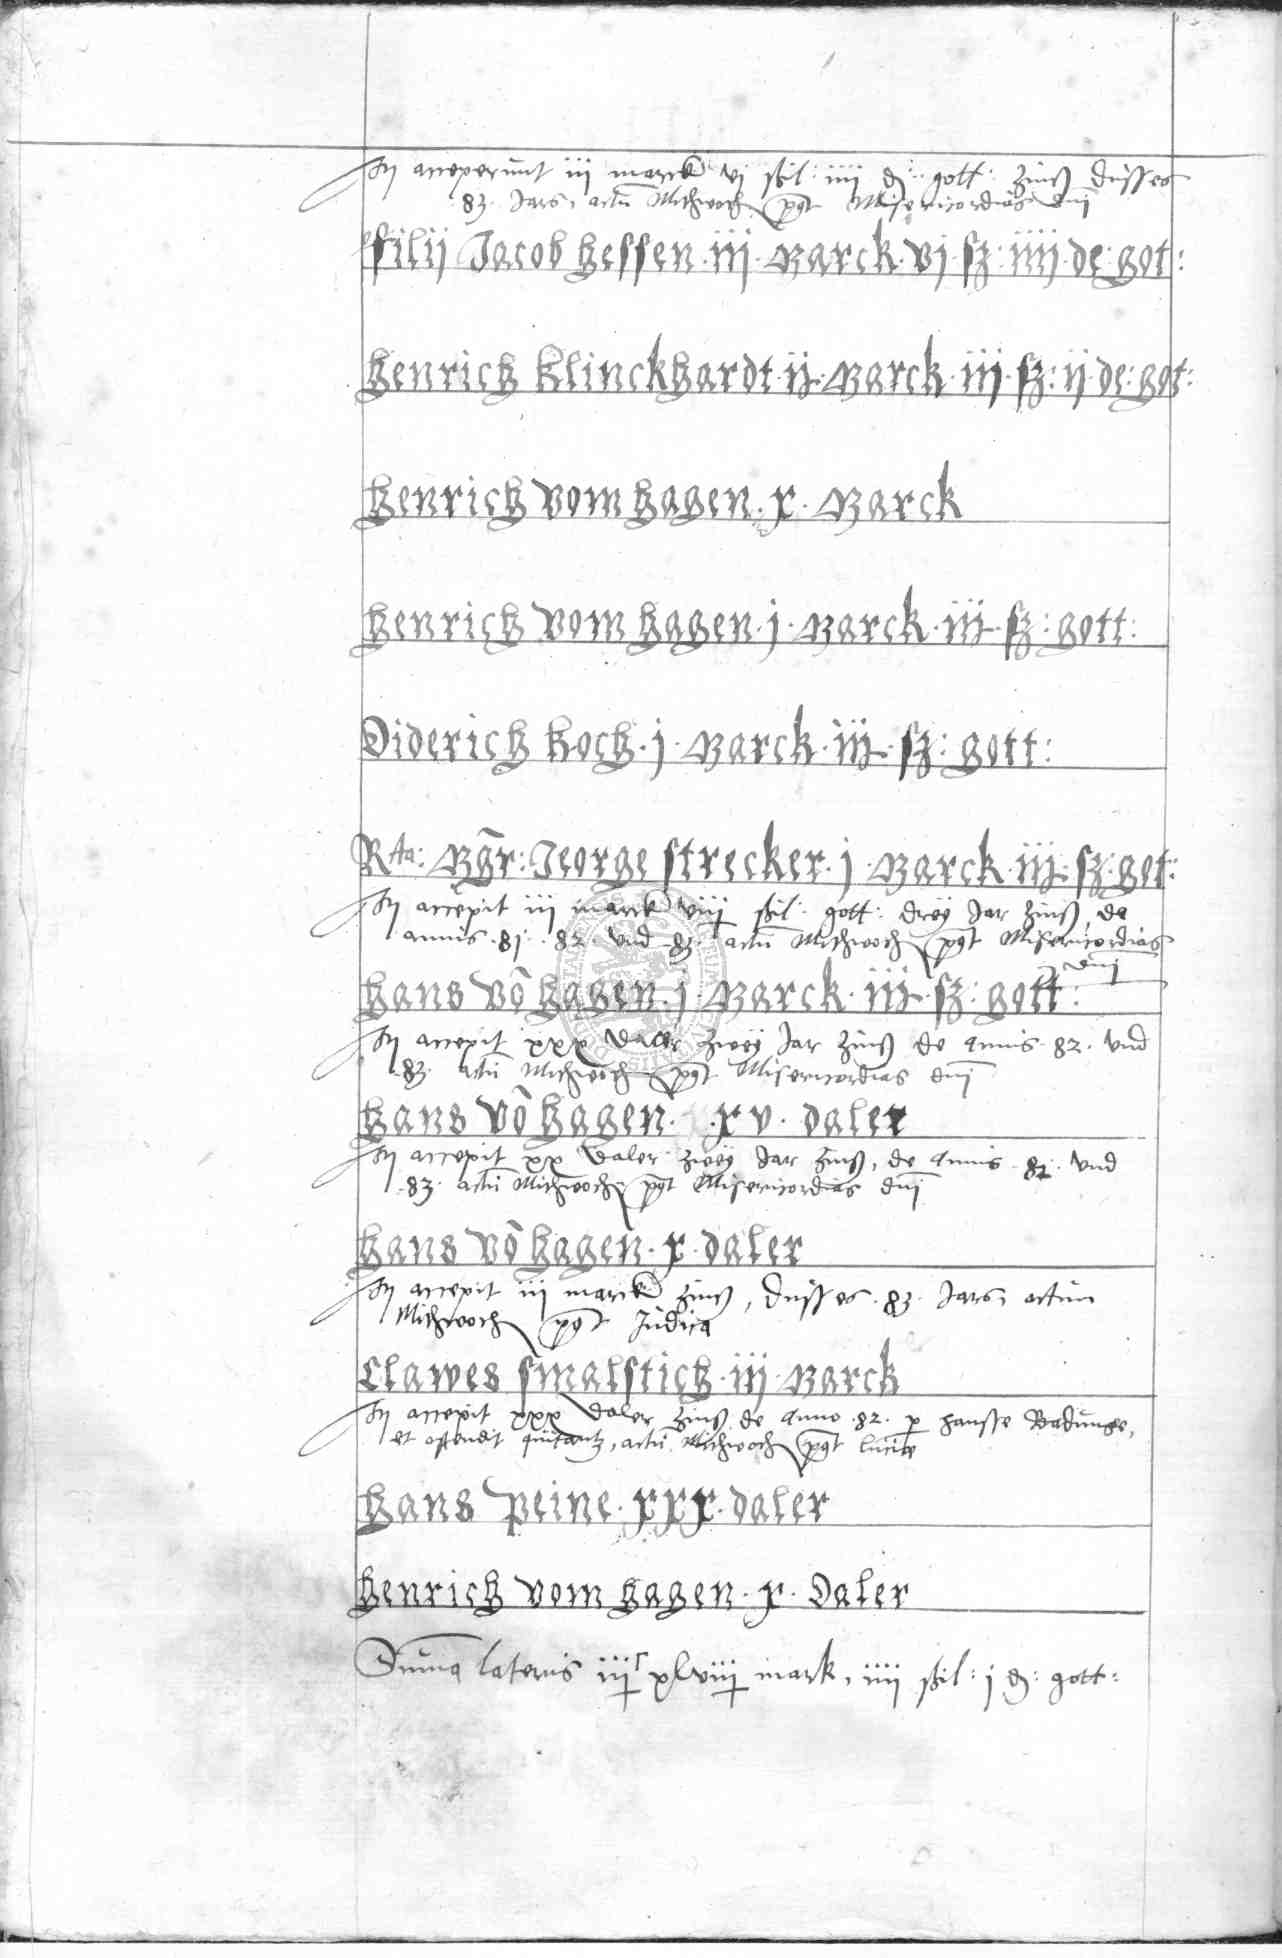 Hij acceperunt iij marck vj ßil: iiij d: gott: Zinß dusses
83. Jars, actu Mithwoch post Misericordias dni
filij Jacob hessen. iij. Marck. vj. sz. iiij de got:
henrich klinckhardt ij. Marck. iij. sz: ij de: got:
henrich vom hagen. x. Marck
henrich vom hagen. j. Marck. iij. sz: gott:
Diderich koch. j. Marck. iij. sz: gott:
Rta: Mgr: Jeorge strecker. j. Marck. iij. sz: got:
Hij accepit iij marck viij ßil: gott: drey Jar Zinß, de
annis. 81. 82. vnd 83. actu Mithwoch post Misericordias
dni
hans vō hagen. j. Marck. iij. sz: gott:
Hij accepit xxx daler zwey Jar Zinß de annis. 82. vnd
83. actu Mithwoch post Misericordias dni
hans vō hagen. xv. daler
Hij accepit xx daler zwey Jar Zinß, de annis. 82. vnd
83. actu Mithwoch post Misericordias dni
hans vō hagen. x. daler
Hij accepit iij marck Zinß, dusses. 83. Jars, actum
Mithwoch post Judica
Clawes smalstich. iij. Marck
Hij accepit xxx daler Zinß de anno. 82. p hansse Badunge,
et ostendit quitantz, actu Mithwoch post lucie
hans Peine. xxx. daler
henrich vom hagen. x. Daler
Summa lateris iijc xlviij mark, iiij ßil: j d: gott: